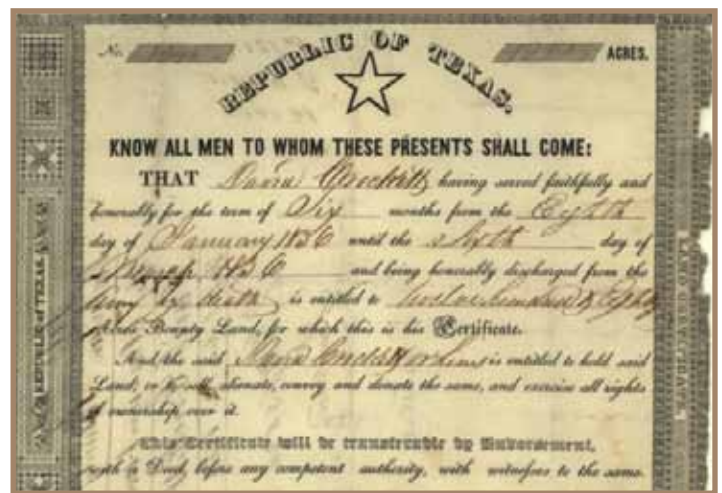 No. ACRES.
REPUBLIC OF TEXAS.
KNOW ALL MEN TO WHOM THESE PRESENTS SHALL COME:
THAT David Crockett having served faithfully and
honorably for the term of Six months from the Eighth
day of January 1836 until the sixth day of
March 1836 and being honorably discharged from the
army by death is entitled to twelve hundred & Eighty
Acres Bounty Land, for which this is his Certificate.
And the said David Crockett or heirs is entitled to hold said
Land, or to sell, alienate, convey and donate the same, and exercise all rights
of ownership over it.
This Certificate will be transferable by Endorsement,
with a Deed, before any competent authority, with witnesses to the same.
REPUBLIC OF TEXAS.